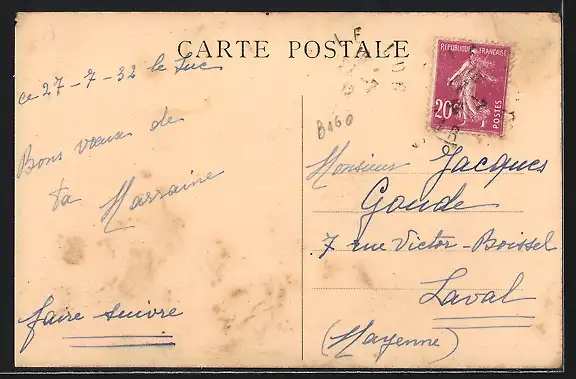 CARTE POSTALE
ce 27-7-32 le Luc
Bons vœux de
ta Marraine
faire suivre
B160
REPUBLIQUE FRANÇAISE
20c
POSTES
Monsieur Jacques
Goude
7 rue Victor-Boissel
Laval
(Mayenne)